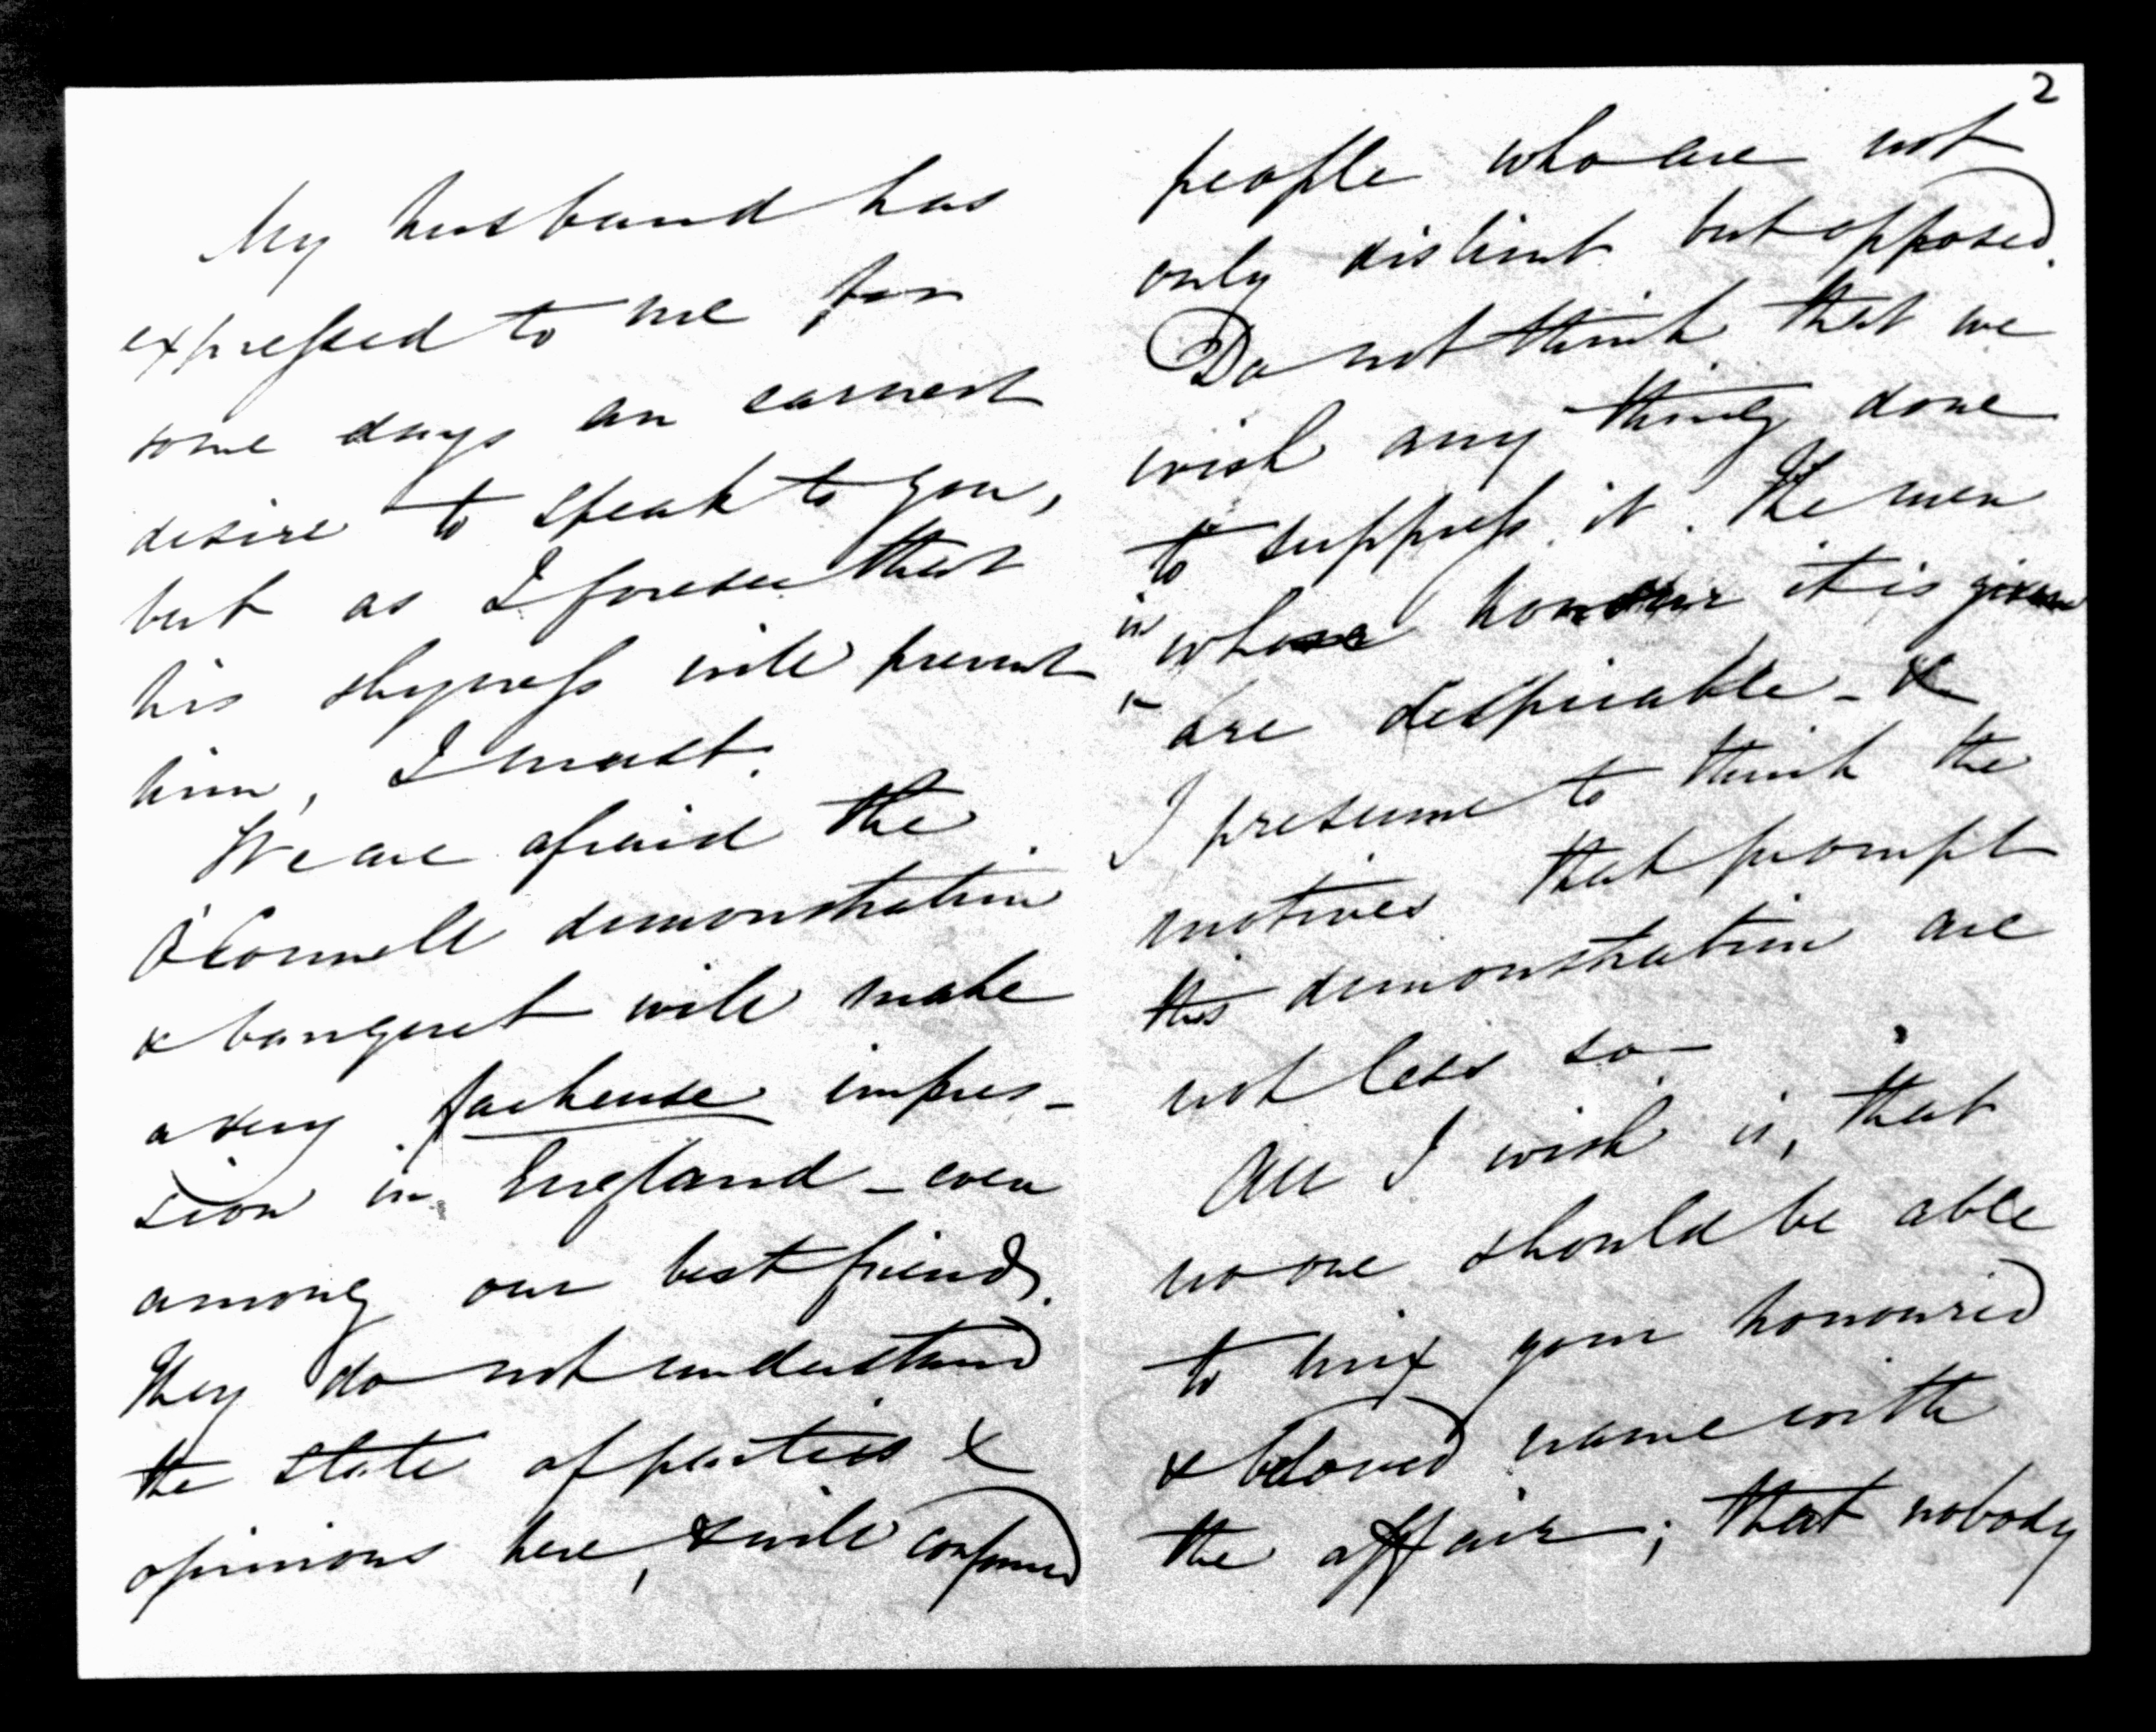 My husband has
expressed to me for
some days an earnest
desire to speak to you,
but as I foresee that
his shyness will prevent
him, I must.
We are afraid the
O'Connell demonstration
& banquet will make
a very facheuse impres-
sion in England – even
among our best friends.
They do not understand
the state of parties &
opinions here, & will confound
2
people who are not
only distinct but opposed.
Do not think that we
wish any thing done
to suppress it. The men
in whose honour it is given
are despicable – &
I presume to think the
motives that prompt
this demonstration are
not less so –
All I wish is, that
no one should be able
to mix your honoured
& beloved name with
the affair; that nobody